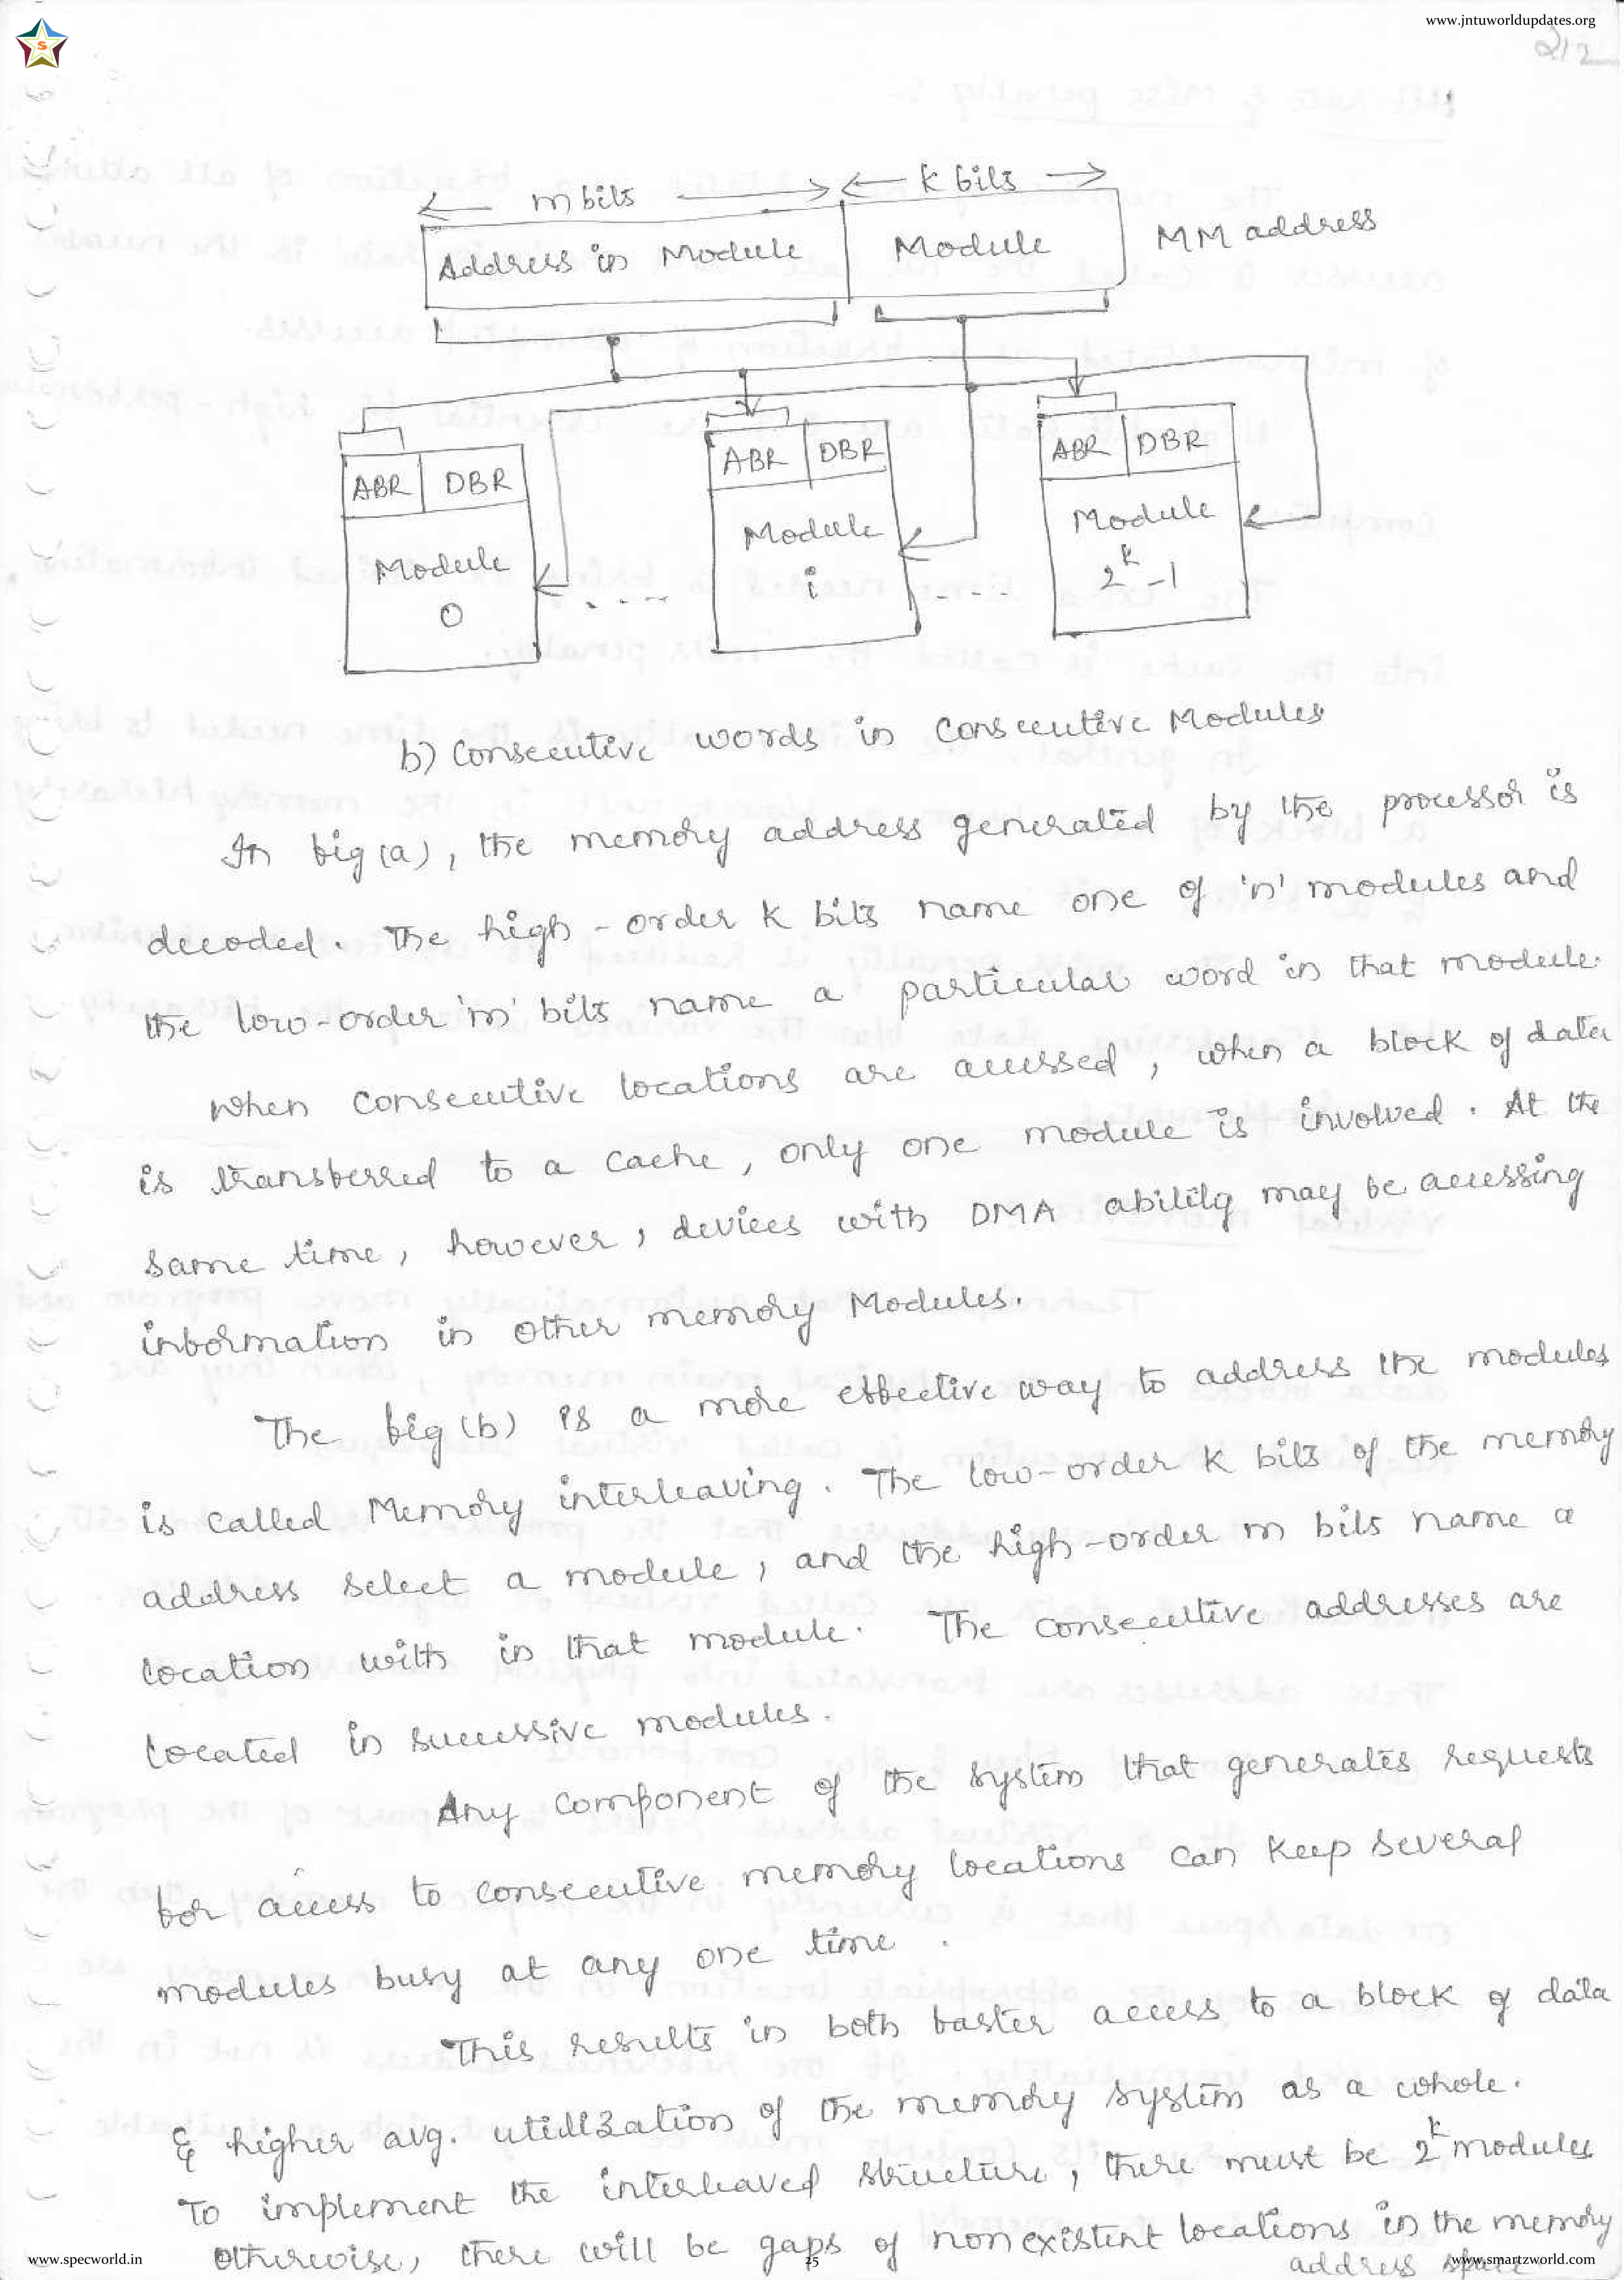 www.jntuworldupdates.org
S
212
m bits k bits
Address in Module Module MM address
ABR DBR ABR DBR ABR DBR
Module 0 Module i Module 2^k-1
.... ....
b) Consecutive words in consecutive Modules
In fig(a), the memory address generated by the processor is
decoded. The high-order k bits name one of 'n' modules and
the low-order 'm' bits name a particular word in that module.
When consecutive locations are accessed, when a block of data
is transferred to a cache, only one module is involved. At the
same time, however, devices with DMA ability may be accessing
information in other memory Modules.
The fig(b) is a more effective way to address the modules
is called Memory interleaving. The low-order k bits of the memory
address select a module, and the high-order m bits name a
location with in that module. The consecutive addresses are
located in successive modules.
Any component of the system that generates requests
for access to consecutive memory locations can keep several
modules busy at any one time.
This results in both faster access to a block of data
& higher avg. utilization of the memory system as a whole.
To implement the interleaved structure, there must be 2^k modules
otherwise, there will be gaps of nonexistent locations in the memory
address space
www.specworld.in 25 www.smartzworld.com